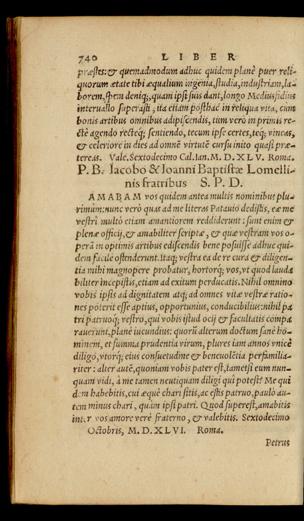 740 LIBER
præstes: & quemadmodum adhuc quidem planè puer reli-
quorum ætate tibi æqualium ingenia, studia, industriam, la-
borem, spem deniq;, quam ipsi suis dant, longo Mediusfidius
interuallo superasti, ita etiam posthac in reliqua vita, cùm
bonis artibus omnibus adipiscendis, tum verò in primis re-
ctè agendo rectéq; sentiendo, tecum ipse certes, teq; vincas,
& celeriore in dies ad omnē virtutē cursu inito quasi præ-
tereas. Vale. Sextodecimo Cal. Ian. M. D. XLV. Roma.
P. B. Iacobo & Ioanni Baptistæ Lomelli-
nis fratribus S. P. D.
AMABAM vos quidem antea multis nominibus plu-
rimùm: nunc verò quas ad me literas Patauio dedistis, eæ me
vestri multò etiam amantiorem reddiderunt: sunt enim &
plenæ officij, & amabiliter scriptæ, & quæ vestram vos o-
peram in optimis artibus ediscendis bene posuisse adhuc qui-
dem facilè ostenderunt. itaq; vestra ea de re cura & diligen-
tia mihi magnopere probatur, hortorq; vos, vt quod lauda
biliter incepistis, etiam ad exitum perducatis. Nihil omnino
vobis ipsis ad dignitatem atq; ad omnes vitæ vestræ ratio-
nes poterit esse aptius, opportunius, conducibilius: nihil pa
tri patruoq; vestro, qui vobis istud ocij & facultatis compa
rauerunt, planè iucundius: quorū alterum doctum sanè ho-
minem, et summa prudentia virum, plures iam annos vnicè
diligo, vtorq; eius consuetudine & beneuolētia perfamilia-
riter: alter autē, quoniam vobis pater est, tametsi eum nun-
quam vidi, à me tamen neutiquam diligi qui potest? Me qui
dem habebitis, cui æquè chari sitis, ac estis patruo, paulò au-
tem minus chari, quàm ipsi patri. Quod superest, amabitis
inter vos amore verè fraterno, & valebitis. Sextodecimo
Octobris, M. D. XLVI. Roma.
Petrus